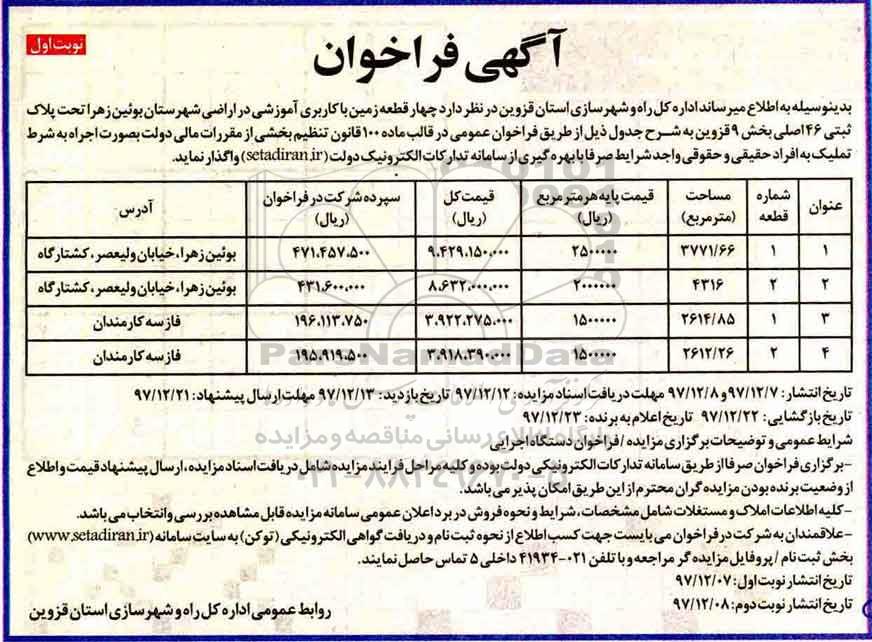 نوبت اول
آگهی فراخوان
بدینوسیله به اطلاع میرساند اداره کل راه و شهرسازی استان قزوین در نظر دارد چهار قطعه زمین با کاربری آموزشی در اراضی شهرستان بوئین زهرا تحت پلاک
ثبتی ۴۶ اصلی بخش ۹ قزوین به شرح جدول ذیل از طریق فراخوان عمومی در قالب ماده ۱۰۰ قانون تنظیم بخشی از مقررات مالی دولت بصورت اجراه به شرط
تملیک به افراد حقیقی و حقوقی واجد شرایط صرفا با بهره گیری از سامانه تدارکات الکترونیک دولت (setadiran.ir) واگذار نماید.
عنوان | شماره قطعه | مساحت (مترمربع) | قیمت پایه هر متر مربع (ریال) | قیمت کل (ریال) | سپرده شرکت در فراخوان (ریال) | آدرس
۱ | ۱ | ۳۷۷۱/۶۶ | ۲۵۰۰۰۰۰ | ۹.۴۲۹.۱۵۰.۰۰۰ | ۴۷۱.۴۵۷.۵۰۰ | بوئین زهرا، خیابان ولیعصر، کشتارگاه
۲ | ۲ | ۴۳۱۶ | ۲۰۰۰۰۰۰ | ۸.۶۳۲.۰۰۰.۰۰۰ | ۴۳۱.۶۰۰.۰۰۰ | بوئین زهرا، خیابان ولیعصر، کشتارگاه
۳ | ۱ | ۲۶۱۴/۸۵ | ۱۵۰۰۰۰۰ | ۳.۹۲۲.۲۷۵.۰۰۰ | ۱۹۶.۱۱۳.۷۵۰ | فاز سه کارمندان
۴ | ۲ | ۲۶۱۲/۲۶ | ۱۵۰۰۰۰۰ | ۳.۹۱۸.۳۹۰.۰۰۰ | ۱۹۵.۹۱۹.۵۰۰ | فاز سه کارمندان
ParsNamadData
تاریخ انتشار: ۹۷/۱۲/۷ و ۹۷/۱۲/۸ مهلت دریافت اسناد مزایده: ۹۷/۱۲/۱۲ تاریخ بازدید: ۹۷/۱۲/۱۳ مهلت ارسال پیشنهاد: ۹۷/۱۲/۲۱
تاریخ بازگشایی: ۹۷/۱۲/۲۲ تاریخ اعلام به برنده: ۹۷/۱۲/۲۳
پایگاه اطلاع رسانی مناقصه و مزایده
شرایط عمومی و توضیحات برگزاری مزایده / فراخوان دستگاه اجرایی
-برگزاری فراخوان صرفا از طریق سامانه تدارکات الکترونیکی دولت بوده و کلیه مراحل فرایند مزایده شامل دریافت اسناد مزایده، ارسال پیشنهاد قیمت و اطلاع
از وضعیت برنده بودن مزایده گران محترم از این طریق امکان پذیر می باشد.
۰۲۱-۸۸۳۴۹۶۷۰-۵
-کلیه اطلاعات املاک و مستغلات شامل مشخصات، شرایط و نحوه فروش در برد اعلان عمومی سامانه مزایده قابل مشاهده بررسی و انتخاب می باشد.
-علاقمندان به شرکت در فراخوان می بایست جهت کسب اطلاع از نحوه ثبت نام و دریافت گواهی الکترونیکی (توکن) به سایت سامانه (www.setadiran.ir)
بخش ثبت نام / پروفایل مزایده گر مراجعه و با تلفن ۰۲۱-۴۱۹۳۴ داخلی ۵ تماس حاصل نمایند.
تاریخ انتشار نوبت اول: ۹۷/۱۲/۰۷
تاریخ انتشار نوبت دوم: ۹۷/۱۲/۰۸
روابط عمومی اداره کل راه و شهرسازی استان قزوین